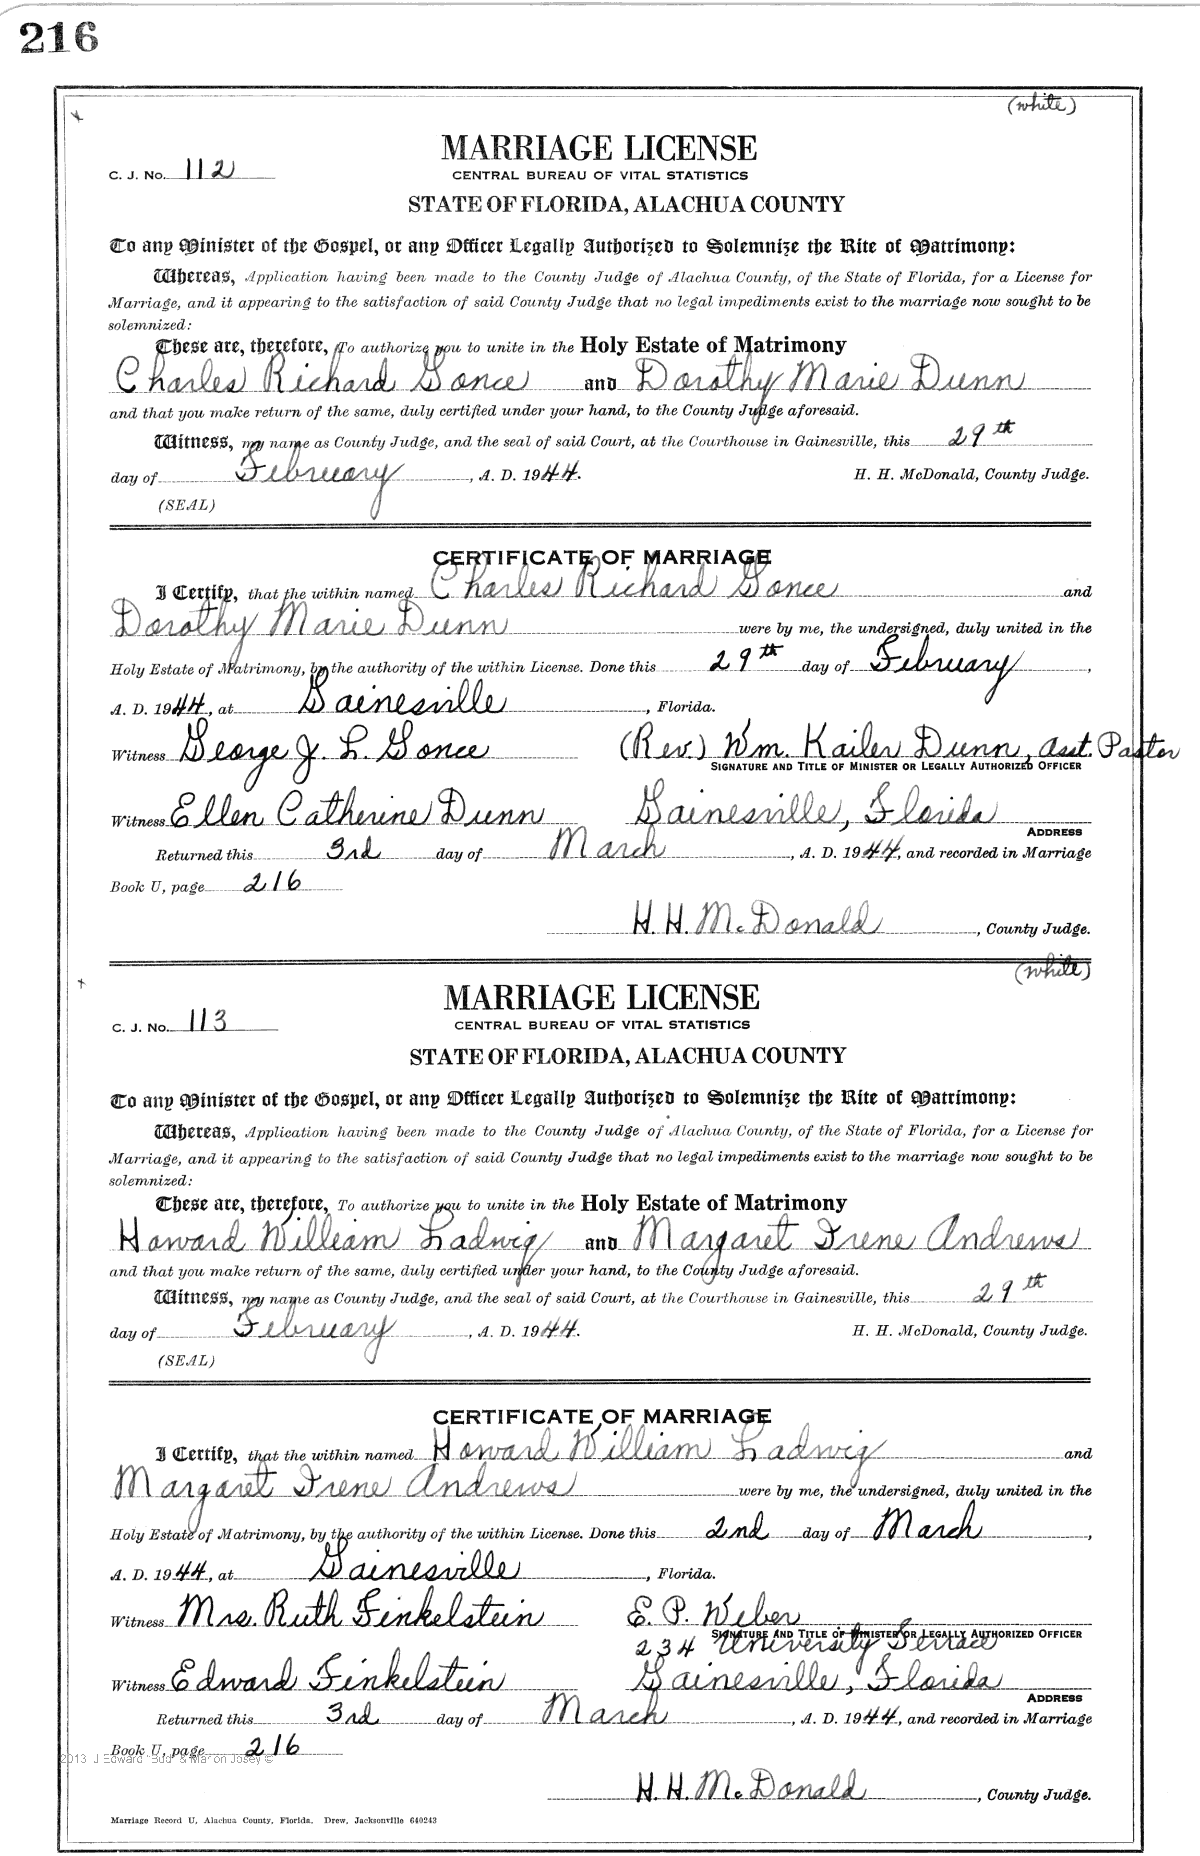 216
(white)
MARRIAGE LICENSE
C. J. No. 112
CENTRAL BUREAU OF VITAL STATISTICS
STATE OF FLORIDA, ALACHUA COUNTY
To any Minister of the Gospel, or any Officer Legally Authorized to Solemnize the Rite of Matrimony:
Whereas, Application having been made to the County Judge of Alachua County, of the State of Florida, for a License for
Marriage, and it appearing to the satisfaction of said County Judge that no legal impediments exist to the marriage now sought to be
solemnized:
These are, therefore, To authorize you to unite in the Holy Estate of Matrimony
Charles Richard Gonce and Dorothy Marie Dunn
and that you make return of the same, duly certified under your hand, to the County Judge aforesaid.
Witness, my name as County Judge, and the seal of said Court, at the Courthouse in Gainesville, this 29th
day of February, A. D. 1944. H. H. McDonald, County Judge.
(SEAL)
CERTIFICATE OF MARRIAGE
I Certify, that the within named Charles Richard Gonce and
Dorothy Marie Dunn were by me, the undersigned, duly united in the
Holy Estate of Matrimony, by the authority of the within License. Done this 29th day of February,
A. D. 1944, at Gainesville, Florida.
Witness George J. L. Gonce (Rev.) Wm. Kailer Dunn, Asst. Pastor
SIGNATURE AND TITLE OF MINISTER OR LEGALLY AUTHORIZED OFFICER
Witness Ellen Catherine Dunn Gainesville, Florida
ADDRESS
Returned this 3rd day of March, A. D. 1944, and recorded in Marriage
Book U, page 216
H. H. McDonald, County Judge.
(white)
MARRIAGE LICENSE
C. J. No. 113
CENTRAL BUREAU OF VITAL STATISTICS
STATE OF FLORIDA, ALACHUA COUNTY
To any Minister of the Gospel, or any Officer Legally Authorized to Solemnize the Rite of Matrimony:
Whereas, Application having been made to the County Judge of Alachua County, of the State of Florida, for a License for
Marriage, and it appearing to the satisfaction of said County Judge that no legal impediments exist to the marriage now sought to be
solemnized:
These are, therefore, To authorize you to unite in the Holy Estate of Matrimony
Howard William Ladwig and Margaret Irene Andrews
and that you make return of the same, duly certified under your hand, to the County Judge aforesaid.
Witness, my name as County Judge, and the seal of said Court, at the Courthouse in Gainesville, this 29th
day of February, A. D. 1944. H. H. McDonald, County Judge.
(SEAL)
CERTIFICATE OF MARRIAGE
I Certify, that the within named Howard William Ladwig and
Margaret Irene Andrews were by me, the undersigned, duly united in the
Holy Estate of Matrimony, by the authority of the within License. Done this 2nd day of March,
A. D. 1944, at Gainesville, Florida.
Witness Mrs. Ruth Finkelstein E. P. Weber
SIGNATURE AND TITLE OF MINISTER OR LEGALLY AUTHORIZED OFFICER
234 University Terrace
Witness Edward Finkelstein Gainesville, Florida
ADDRESS
Returned this 3rd day of March, A. D. 1944, and recorded in Marriage
Book U, page 216
2013 J Edward "Bud" & Marion Josey ©
H. H. McDonald, County Judge.
Marriage Record U, Alachua County, Florida. Drew, Jacksonville 640243